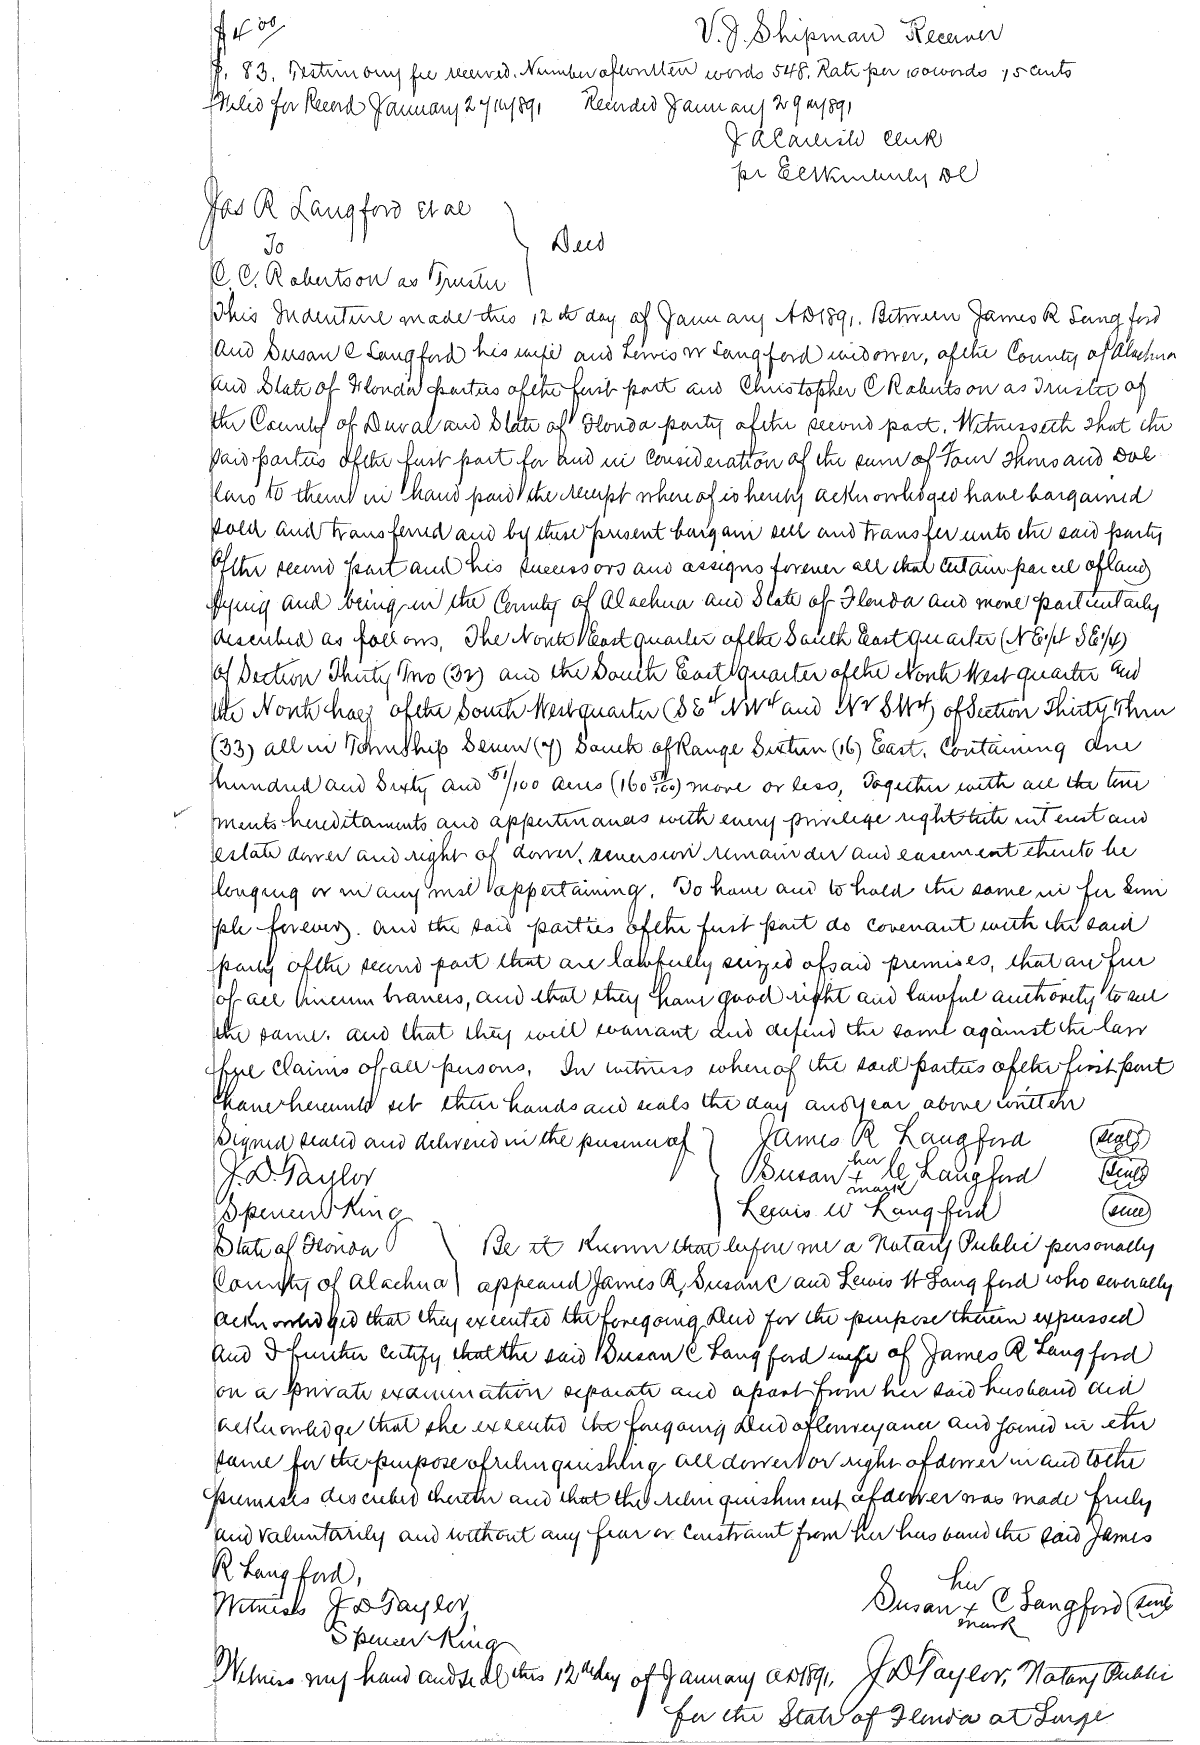 $4.00
V. J. Shipman Receiver
P. 83. Testimony fee received. Number of written words 548. Rate per 100 words 15 cents
Filed for Record January 27th 1891 Recorded January 29th 1891
J A Carlisle Clerk
pr DC
Jas R Langford et al
To
Deed
C. C. Robertson as Trustee
This Indenture made this 12th day of January AD 1891. Between James R Langford
and Susan C Langford his wife and Lewis W Langford widower, of the County of Alachua
and State of Florida parties of the first part and Christopher C Robertson as Trustee of
the County of Duval and State of Florida party of the second part. Witnesseth that the
said parties of the first part for and in consideration of the sum of Four Thousand Dol
lars to them in hand paid the receipt whereof is hereby acknowledged have bargained
sold and transferred and by these present bargain sell and transfer unto the said party
of the second part and his successors and assigns forever all that certain parcel of land
lying and being in the County of Alachua and State of Florida and more particularly
described as follows, The North East quarter of the South East quarter (NE 1/4 SE 1/4)
of Section Thirty Two (32) and the South East quarter of the North West quarter and
the North half of the South West quarter (SE 4 NW 4 and N 2 SW 4) of Section Thirty Three
(33) all in Township Seven (7) South of Range Sixteen (16) East. Containing One
hundred and Sixty and 51/100 acres (160 51/100) more or less, Together with all the tene
ments hereditaments and appertinances with every privilege right title interest and
estate dower and right of dower, reversion remainder and easement thereto be
longing or in any wise appertaining. To have and to hold the same in fee Sim
ple forever. and the said parties of the first part do covenant with the said
party of the second part that are lawfully seized of said premises, that are free
of all incumbrances, and that they have good right and lawful authority to sell
the same. and that they will warrant and defend the same against the law
full claims of all persons. In witness whereof the said parties of the first part
have hereunto set their hands and seals the day and year above written
Signed sealed and delivered in the presence of James R Langford (seal)
J. D. Taylor Susan her x mark C Langford (seal)
Spencer King Lewis W Langford (seal)
State of Florida Be it Known that before me a Notary Public personally
County of Alachua appeared James R, Susan C and Lewis W Langford who severally
acknowledged that they executed the foregoing Deed for the purpose therein expressed
And I further certify that the said Susan C Langford wife of James R Langford
on a private examination separate and apart from her said husband did
acknowledge that she executed the foregoing Deed of Conveyance and joined in the
same for the purpose of relinquishing all dower or right of dower in and to the
premises described therein and that the relinquishment of dower was made freely
and voluntarily and without any fear or constraint from her husband the said James
R Langford,
Witness J D Taylor Susan her x mark C Langford (seal)
Spencer King
Witness my hand and seal this 12th day of January AD 1891, J D Taylor, Notary Public
for the State of Florida at Large